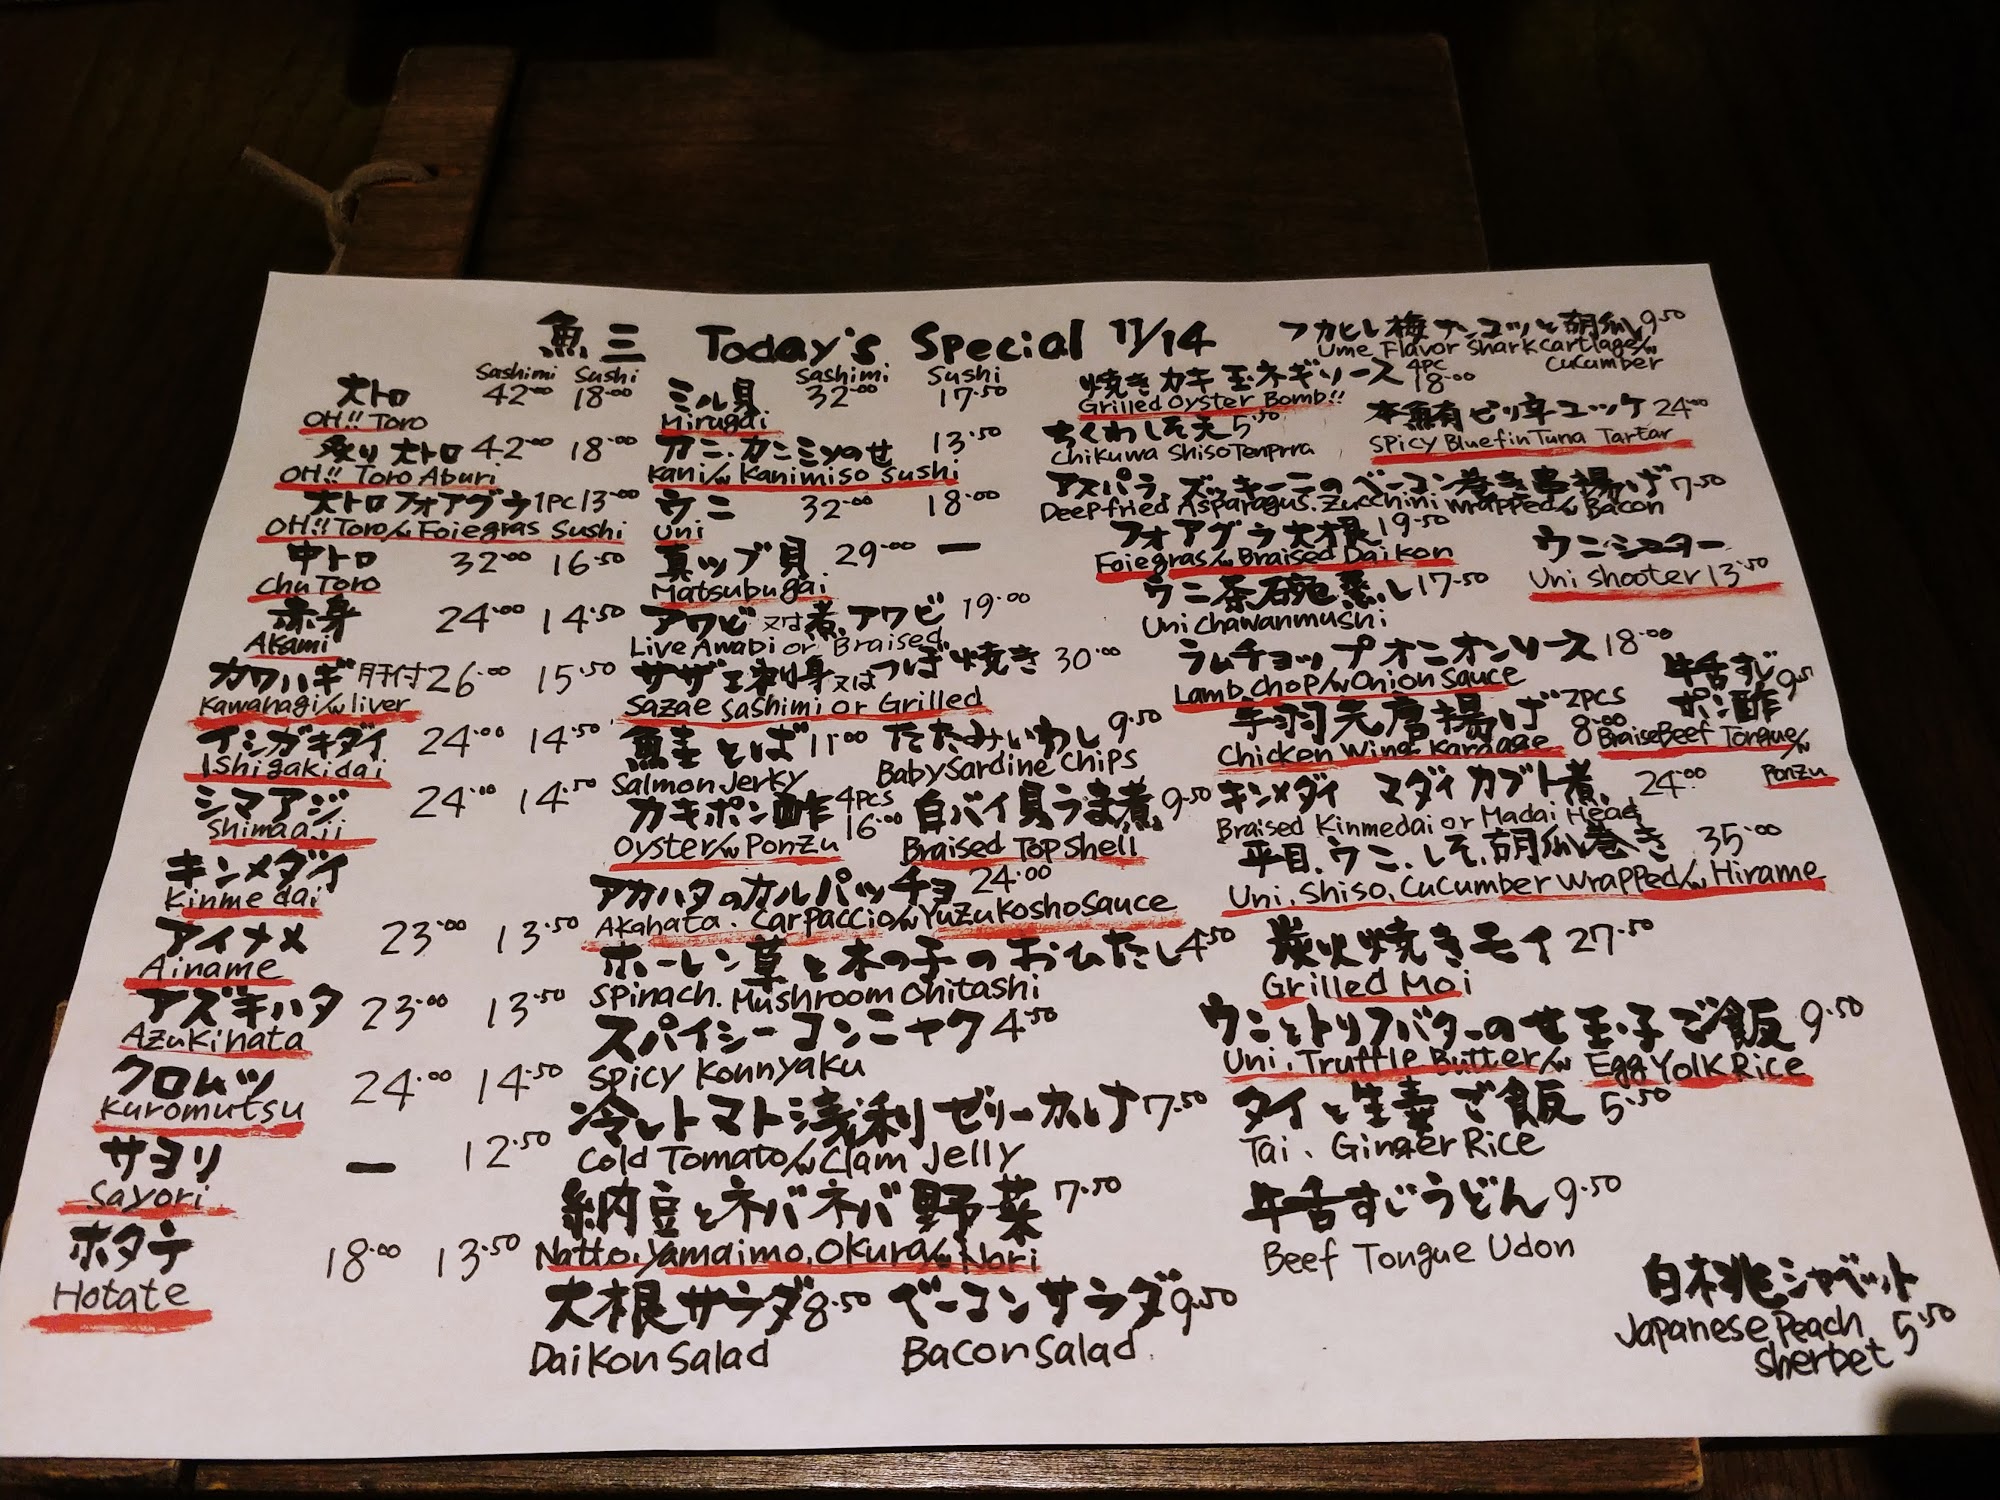 魚三 Today's Special 11/14
Sashimi Sushi
大トロ 42.00 18.00
OH!! Toro
炙り大トロ 42.00 18.00
OH!! Toro Aburi
大トロフォアグラ 1PC 13.00
OH!! Toro/w Foiegras Sushi
中トロ 32.00 16.50
Chu Toro
赤身 24.00 14.50
Akami
カワハギ肝付 26.00 15.50
Kawahagi/w liver
イシガキダイ 24.00 14.50
Ishigakidai
シマアジ 24.00 14.50
Shimaaji
キンメダイ
Kinmedai
アイナメ 23.00 13.50
Ainame
アズキハタ 23.00 13.50
Azukihata
クロムツ 24.00 14.50
Kuromutsu
サヨリ — 12.50
Sayori
ホタテ 18.00 13.50
Hotate
Sashimi Sushi
ミル貝 32.00 17.50
Mirugai
カニ、カニミソのせ 13.50
Kani/w Kanimiso Sushi
ウニ 32.00 18.00
Uni
真ツブ貝 29.00 —
Matsubugai
アワビ又は煮アワビ 19.00
Live Awabi or Braised
サザエ刺身又はつぼ焼き 30.00
Sazae Sashimi or Grilled
鮭とば 11.00
Salmon Jerky
たたみいわし 9.50
Baby Sardine Chips
カキポン酢 4PCS 16.00
Oyster/w Ponzu
白バイ貝うま煮 9.50
Braised Top Shell
アカハタのカルパッチョ 24.00
Akahata. Carpaccio/w Yuzukosho Sauce
ホーレン草と木の子のおひたし 4.50
Spinach. Mushroom Ohitashi
スパイシーコンニャク 4.50
Spicy Konnyaku
冷しトマト浅利ゼリーかけ 7.50
Cold Tomato/w Clam Jelly
納豆とネバネバ野菜 7.50
Natto, Yamaimo, Okura/w Nori
大根サラダ 8.50
Daikon Salad
ベーコンサラダ 9.50
Bacon Salad
フカヒレ梅ナンコツと胡瓜 9.50
Ume Flavor Shark Cartlage/w
Cucumber
焼きカキ玉ネギソース 4PC 18.00
Grilled Oyster Bomb!!
本鮪ピリ辛ユッケ 24.00
Spicy Bluefin Tuna Tartar
ちくわしそ天 5.50
Chikuwa Shiso Tenprra
アスパラ、ズッキーニのベーコン巻き串揚げ 7.50
Deepfried Asparagus. Zucchini Wrapped/w Bacon
フォアグラ大根 19.50
Foiegras/w Braised Daikon
ウニシューター
Uni Shooter 13.50
ウニ茶碗蒸し 17.50
Uni Chawanmushi
ラムチョップオニオンソース 18.00
Lamb Chop/w Onion Sauce
手羽元唐揚げ 2PCS 8.00
Chicken Wing Karaage
牛舌すじ
ポン酢 9.50
Braise Beef Tongue/w
Ponzu
キンメダイ マダイカブト煮 24.00
Braised Kinmedai or Madai Head
平目、ウニ、しそ、胡瓜巻き 35.00
Uni, Shiso, Cucumber Wrapped/w Hirame
炭火焼きモイ 27.50
Grilled Moi
ウニとトリフバターのせ玉子ご飯 9.50
Uni, Truffle Butter/w Egg Yolk Rice
タイと生姜ご飯 5.50
Tai, Ginger Rice
牛舌すじうどん 9.50
Beef Tongue Udon
白桃シャーベット
Japanese Peach
Sherbet 5.50